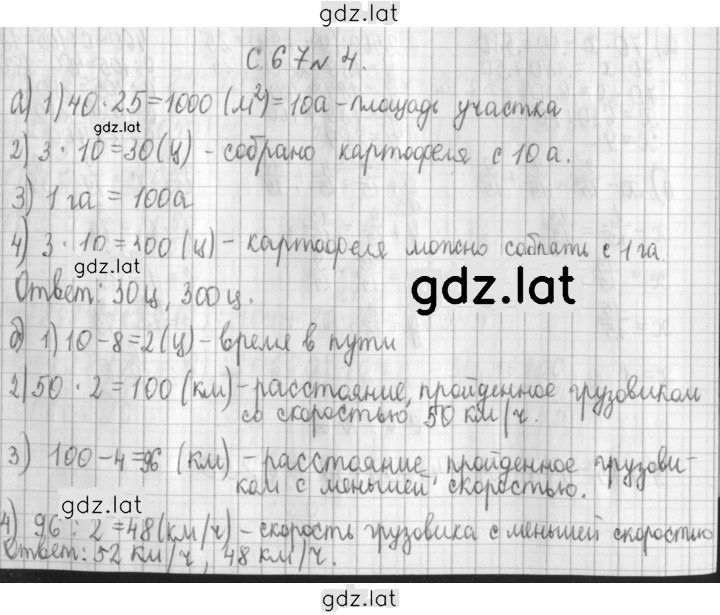 gdz.lat
С. 67 № 4.
а) 1) 40 · 25 = 1000 (м²) = 10а - площадь участка
gdz.lat
2) 3 · 10 = 30 (ц) - собрано картофеля с 10 а.
3) 1 га = 100а
4) 3 · 10 = 300 (ц) - картофеля можно собрать с 1 га
gdz.lat
Ответ: 30 ц, 300 ц.
gdz.lat
б) 1) 10 - 8 = 2 (ц) - время в пути
2) 50 · 2 = 100 (км) - расстояние, пройденное грузовиком
со скоростью 50 км/ч.
3) 100 - 4 = 96 (км) - расстояние, пройденное грузови-
ком с меньшей скоростью.
gdz.lat
4) 96 : 2 = 48 (км/ч) - скорость грузовика с меньшей скоростью
Ответ: 52 км/ч, 48 км/ч.
gdz.lat